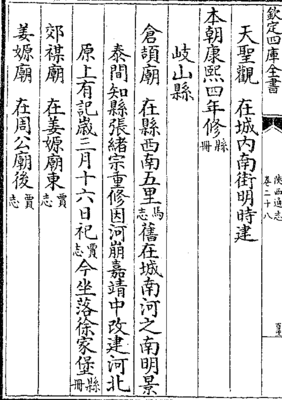 欽定四庫全書
陝西通志
卷二十八
天聖觀 在城內南街明時建
本朝康熙四年修縣冊
岐山縣
倉頡廟 在縣西南五里馬志舊在城南河之南明景
泰間知縣張緒宗重修因河崩嘉靖中改建河北
原上有記歲三月十六日祀賈志今坐落徐家堡縣冊
郊禖廟 在姜嫄廟東賈志
姜嫄廟 在周公廟後賈志